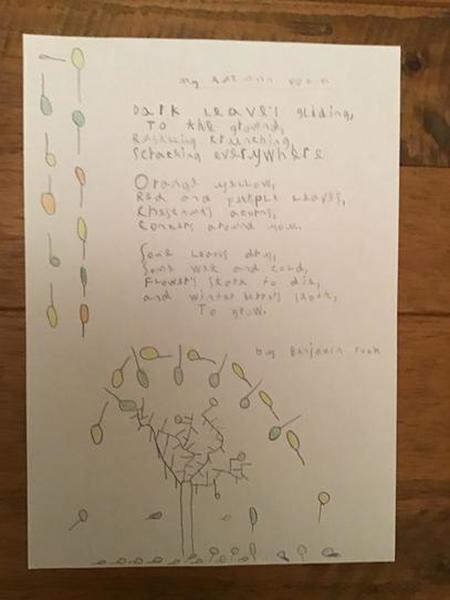 my autumn poem
Dark leave's gliding,
To the ground,
Rattling crunching,
Scraching everywhere
Orange yellow,
Red and purple leaves,
Chesenuts acorns,
Conkers around you.
Some leaves dry,
Some wet and cold,
Flower's start to die,
and winter starts,
To grow.
by Benjamin